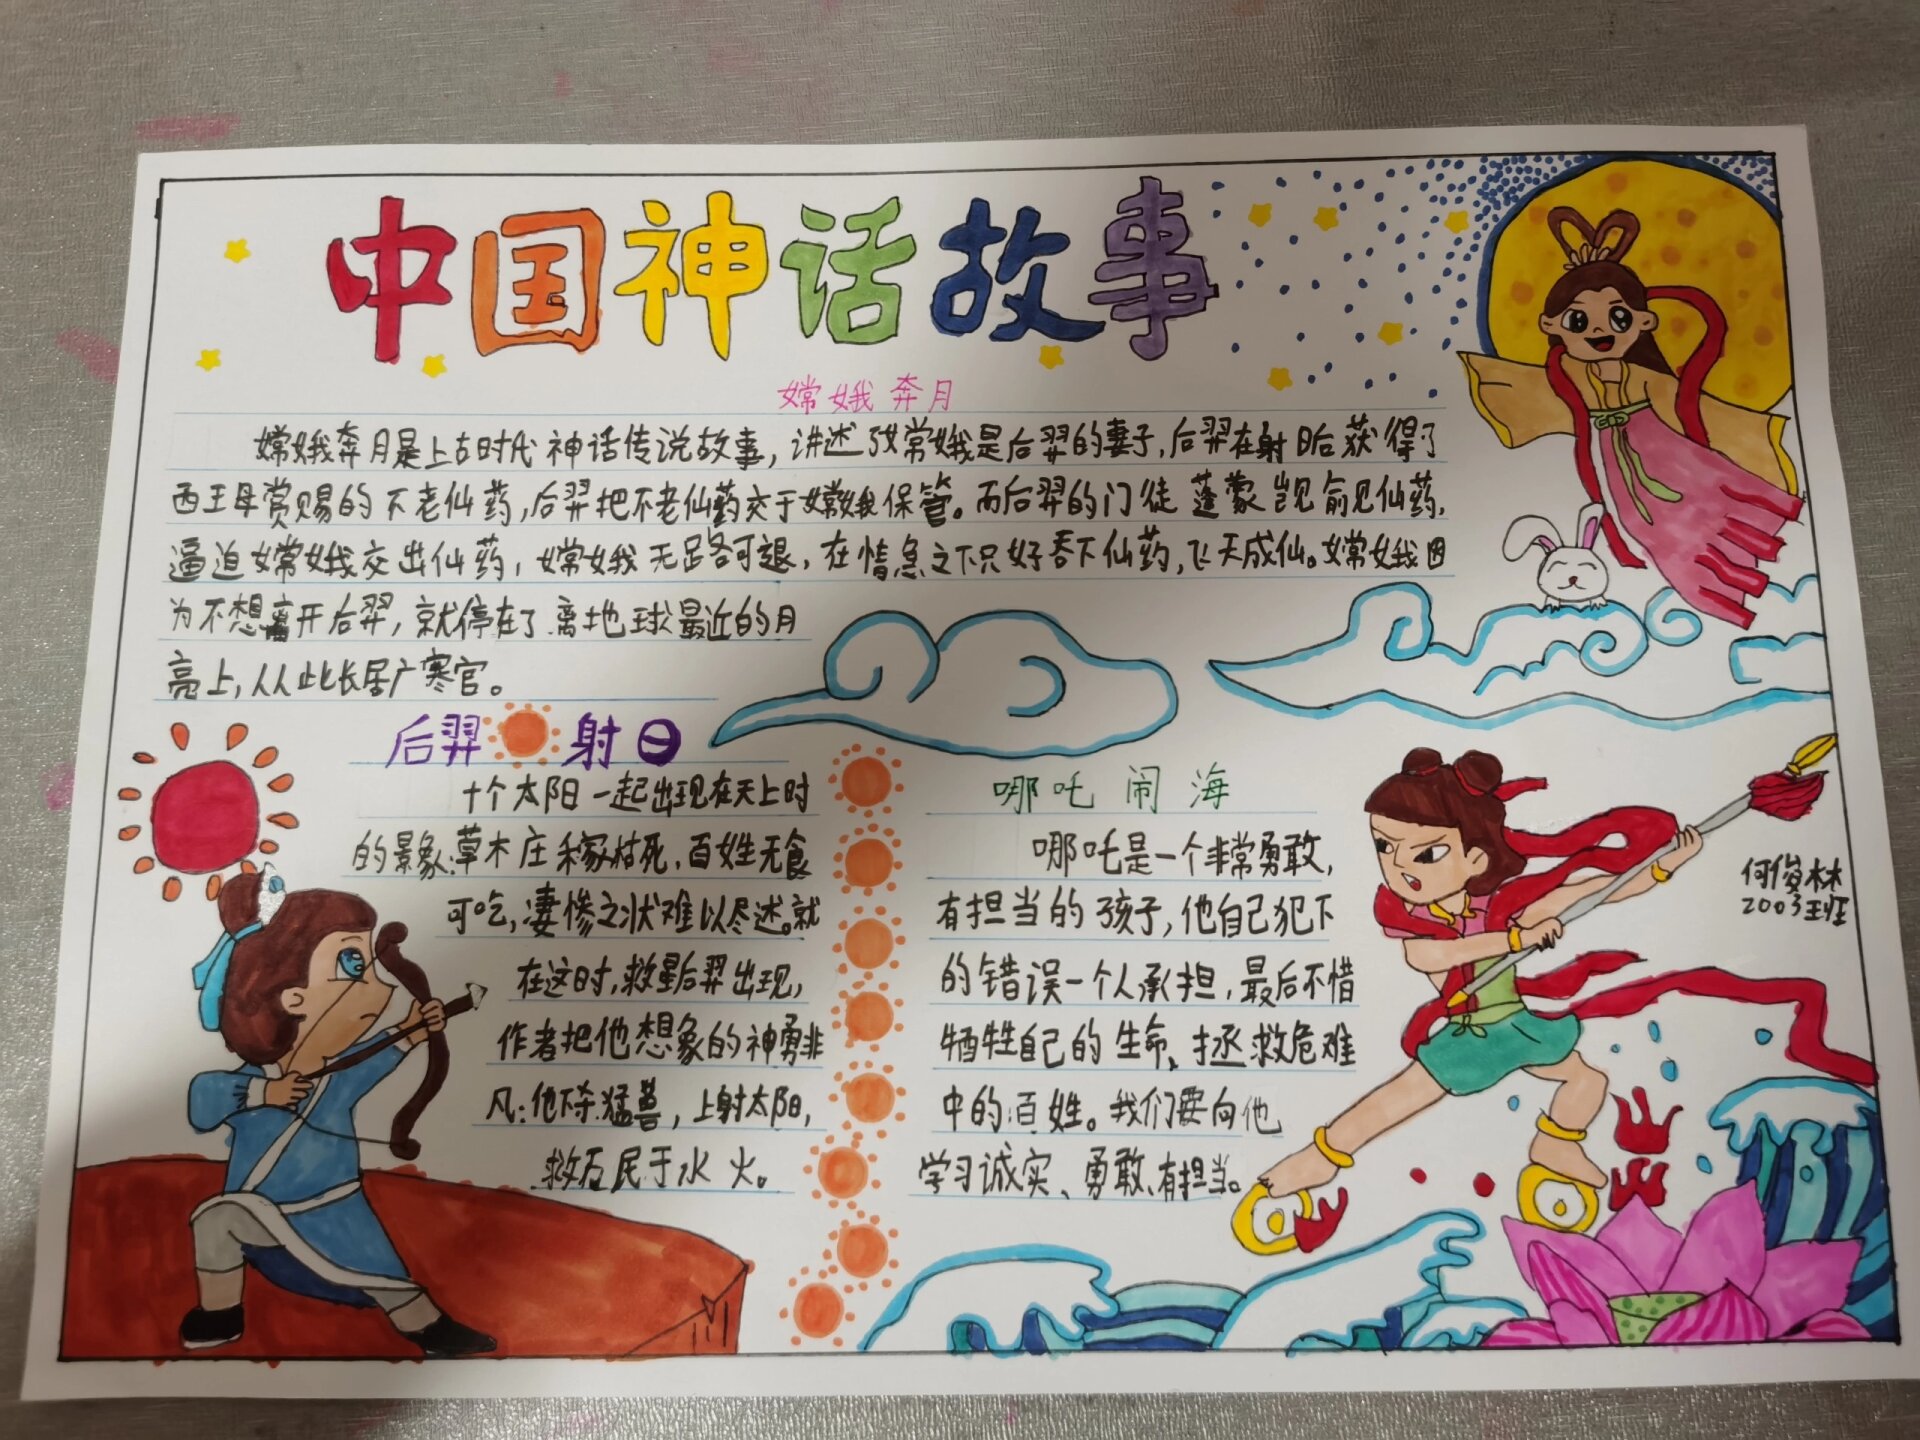 中国神话故事
嫦娥奔月
嫦娥奔月是上古时代神话传说故事，讲述了嫦娥是后羿的妻子，后羿在射日后获得了
西王母赏赐的不老仙药，后羿把不老仙药交于嫦娥保管。而后羿的门徒蓬蒙觊觎仙药，
逼迫嫦娥交出仙药，嫦娥无路可退，在情急之下只好吞下仙药，飞天成仙。嫦娥因
为不想离开后羿，就停在了离地球最近的月
亮上，从此长居广寒宫。
后羿射日
十个太阳一起出现在天上时
的景象：草木庄稼枯死，百姓无食
可吃，凄惨之状难以尽述。就
在这时，救星后羿出现，
作者把他想象的神勇非
凡：他下杀猛兽，上射太阳，
救万民于水火。
哪吒闹海
哪吒是一个非常勇敢，
有担当的孩子，他自己犯下
的错误一个人承担，最后不惜
牺牲自己的生命、拯救危难
中的百姓。我们要向他
学习诚实、勇敢、有担当。
何俊林
2003班